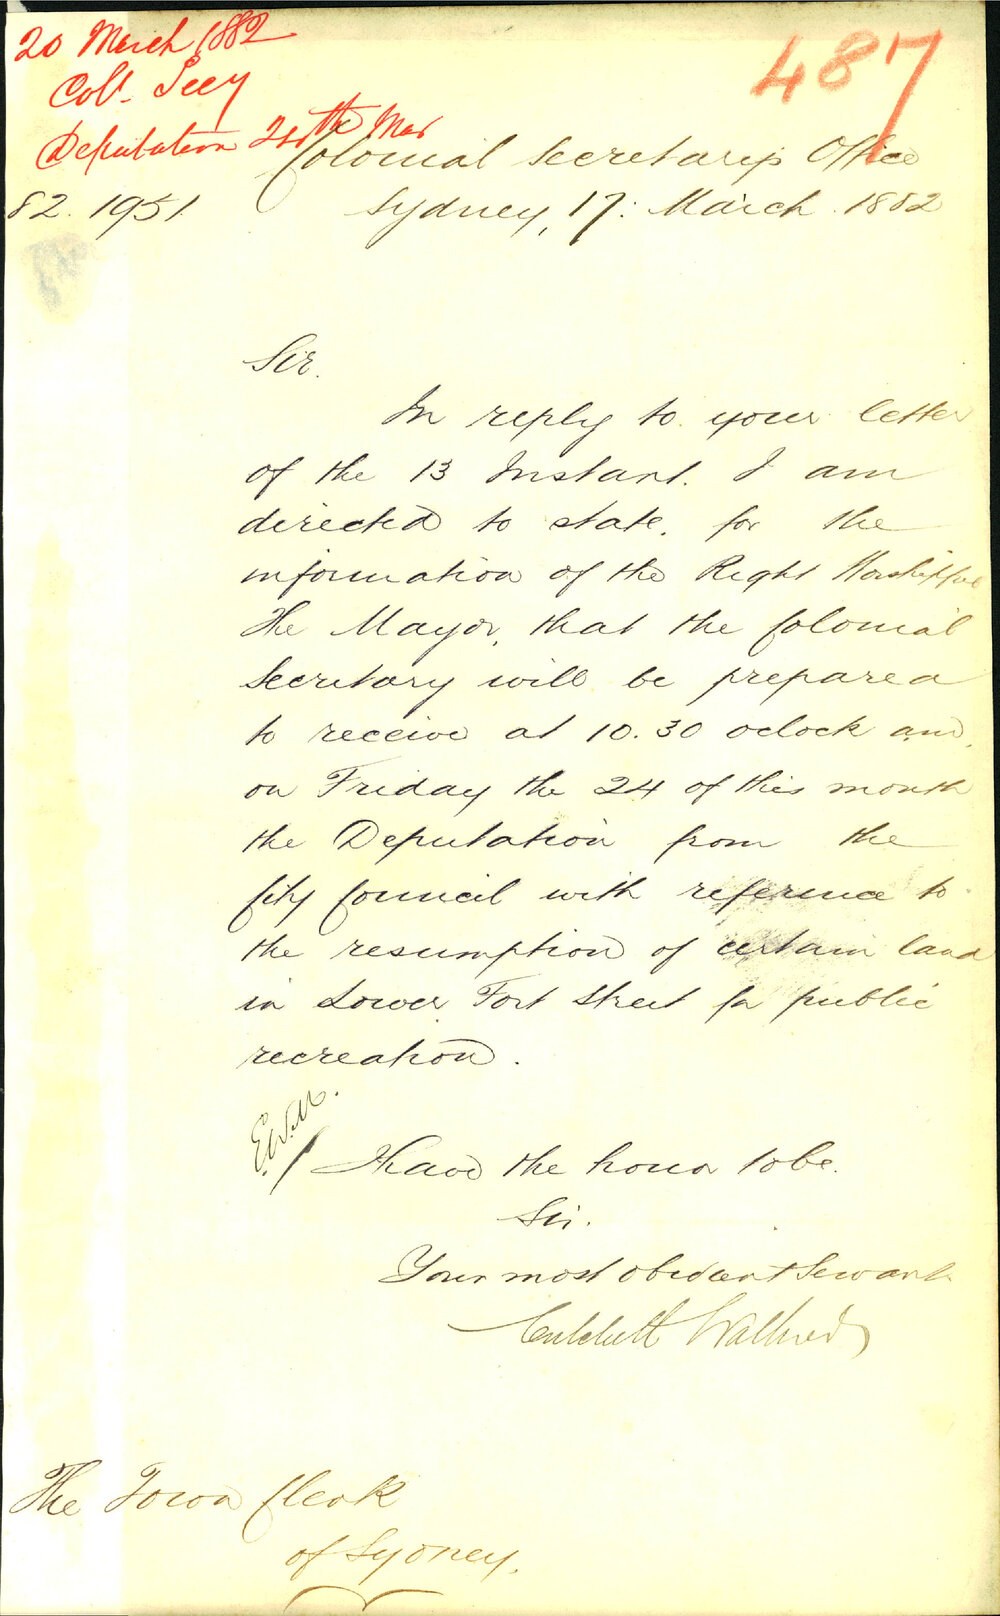 20 March 1882
Col. Secy
Deputation 24th Mar
487
Colonial Secretarys Office
82.1951.
Sydney, 17: March. 1882
Sir.
In reply to your letter
of the 13 Instant. I am
directed to state. for the
information of the Right Worshipful
The Mayor, that the Colonial
Secretary will be prepared
to receive at 10.30 oclock am.
on Friday the 24 of this month
the Deputation from the
City Council with reference to
the resumption of certain land
in Lower Fort Street for public
recreation.
E.W.M.
I Have the honor to be.
Sir.
Your most obedient Servant.
Critchett Walker
The Town Clerk
of Sydney.